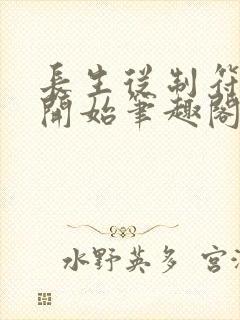 長生從制符
開始筆趣閣
水野英多 宮